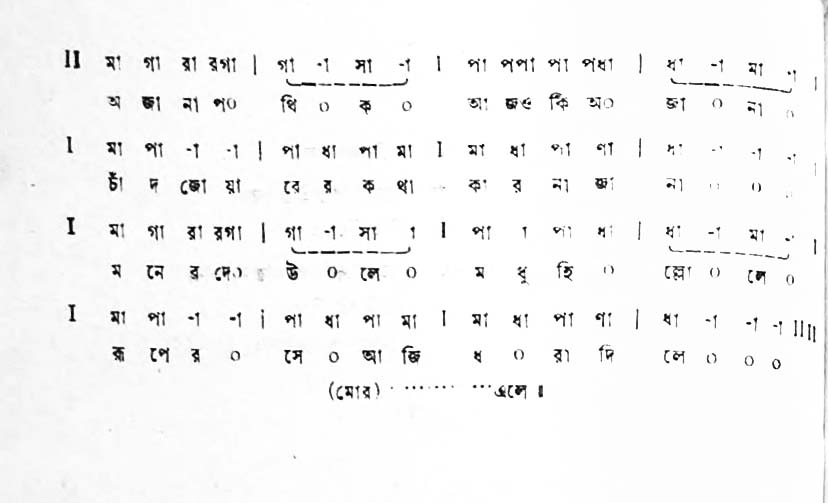 II মা গা রা রগা | গা -া সা -া I পা পপা পা পধা | ধা -া মা -া I
অ জা না প০ থি ০ ক ০ আ জও কি অ০ জা ০ না ০
I মা পা -া -া | পা ধা পা মা I মা ধা পা ণা | ধা -া -া -া I
চাঁ দ জো য়া রে র ক থা কা র না জা না ০ ০ ০
I মা গা রা রগা | গা -া সা া I পা া পা ধা | ধা -া মা -া I
ম নে র দো০ উ ০ লে ০ ম ধু হি ০ ল্লো ০ লে ০
I মা পা -া -া | পা ধা পা মা I মা ধা পা ণা | ধা -া -া -া II II
রূ পে র ০ সে ০ আ জি ধ ০ রা দি লে ০ ০ ০
(মোর) ·········· ···এলে ॥